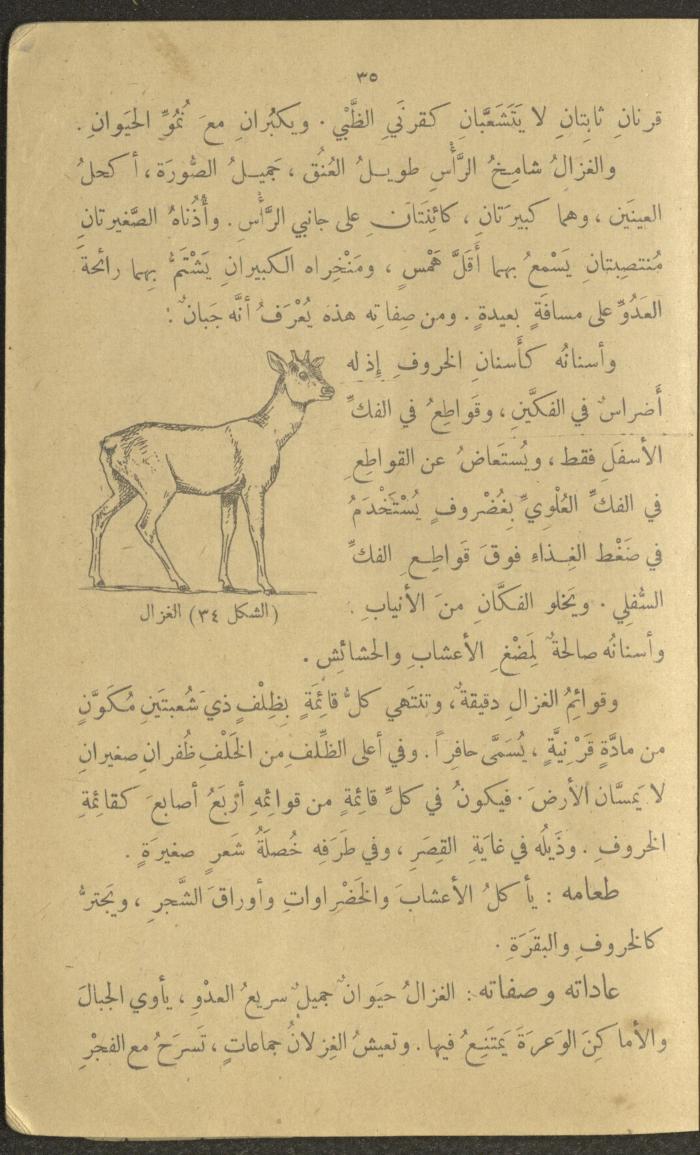 ٣٥
قرنان ثابتانِ لا يَتَشَعَّبانِ كقرنَيِ الظَّبْي . ويكبُرانِ معَ نُمُوِّ الحيَوانِ .
والغزالُ شامِخُ الرَّأْسِ طويلُ العُنُق ، جَميلُ الصُّورَة ، أكحلُ
العينَين ، وهما كبيرَتانِ ، كائِنَتانِ على جانبي الرَّأْسِ . وأُذُناهُ الصَّغيرتانِ
مُنتصِبتانِ يَسْمعُ بهما أَقَلَّ هَمْسٍ ، ومَنْخِراه الكبيرانِ يَشْتَمُّ بِهما رائحةَ
العَدُوِّ على مسافَةٍ بعيدةٍ . ومن صِفاتِه هذه يُعْرَفُ أنَّه جَبانٌ :
وأسنانُه كأَسنانِ الخروفِ إِذ له
أَضراسٌ في الفكَّينِ ، وقَواطِعُ في الفكِّ
الأسفَلِ فقط ، ويُستَعاضُ عن القواطِعِ
في الفكِّ العُلْوِيِّ بِغُضْروفٍ يُسْتَخْدَمُ
في ضَغْط الغِذاءِ فوقَ قَواطِعِ الفكِّ
السُّفلي . ويَخلو الفكَّانِ منَ الأنيابِ .
(الشكل ٣٤) الغزال
وأسنانُه صالحةٌ لِمَضْغِ الأعشابِ والحشائِشِ .
وقوائِمُ الغزالِ دقيقةٌ ، وتنتَهي كلُّ قائِمَةٍ بِظِلْفٍ ذي شُعبتَينِ مُكَوَّنٍ
من مادَّةٍ قَرْنِيَّةٍ ، يُسَمَّى حافِراً . وفي أعلى الظِّلف من الخَلْفِ ظُفرانِ صغيرانِ
لا يَمسَّان الأرضَ . فيكونُ في كلِّ قائِمةٍ من قوائِمِهِ أرْبَعُ أصابعَ كقائِمةِ
الخروفِ . وذَيلُه في غايَةِ القِصَرِ ، وفي طَرَفِه خُصلَةُ شَعرٍ صغيرَةٍ .
طعامه : يأكلُ الأعشابَ والخَضْراواتِ وأوراقَ الشَّجرِ ، ويَجترُّ
كالخروفِ والبقَرَةِ .
عاداته وصفاته : الغزالُ حيَوانٌ جميلٌ سريعُ العدْوِ ، يأوي الجبالَ
والأماكِنَ الوَعرَةَ يَمتَنِعُ فيها . وتعيشُ الغِزلانُ جماعاتٍ ، تَسرَحُ مع الفجْرِ